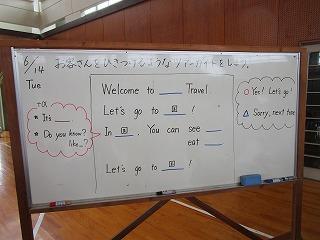 6/14
Tue
お客さんをひきつけるようなツアーガイドをしよう。
Welcome to ____ Travel.
Let's go to 国 !
In 国, You can see ____
eat ____
Let's go to 国 !
+α
* It's ____.
* Do you know?
like...?
○ Yes! Let's go!
△ Sorry, next time